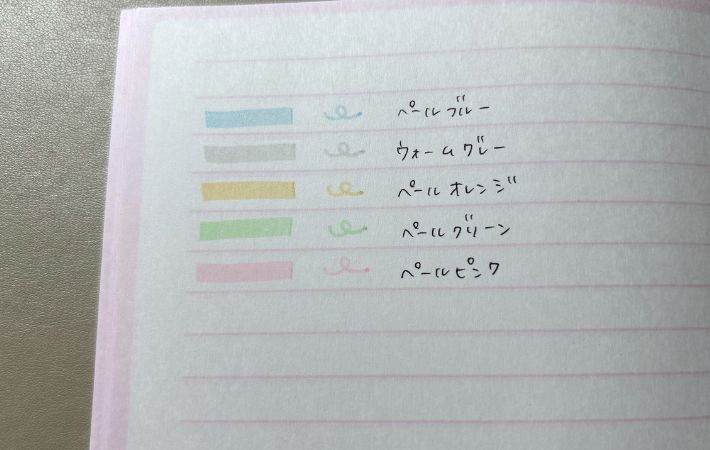 ペールブルー
ウォームグレー
ペールオレンジ
ペールグリーン
ペールピンク